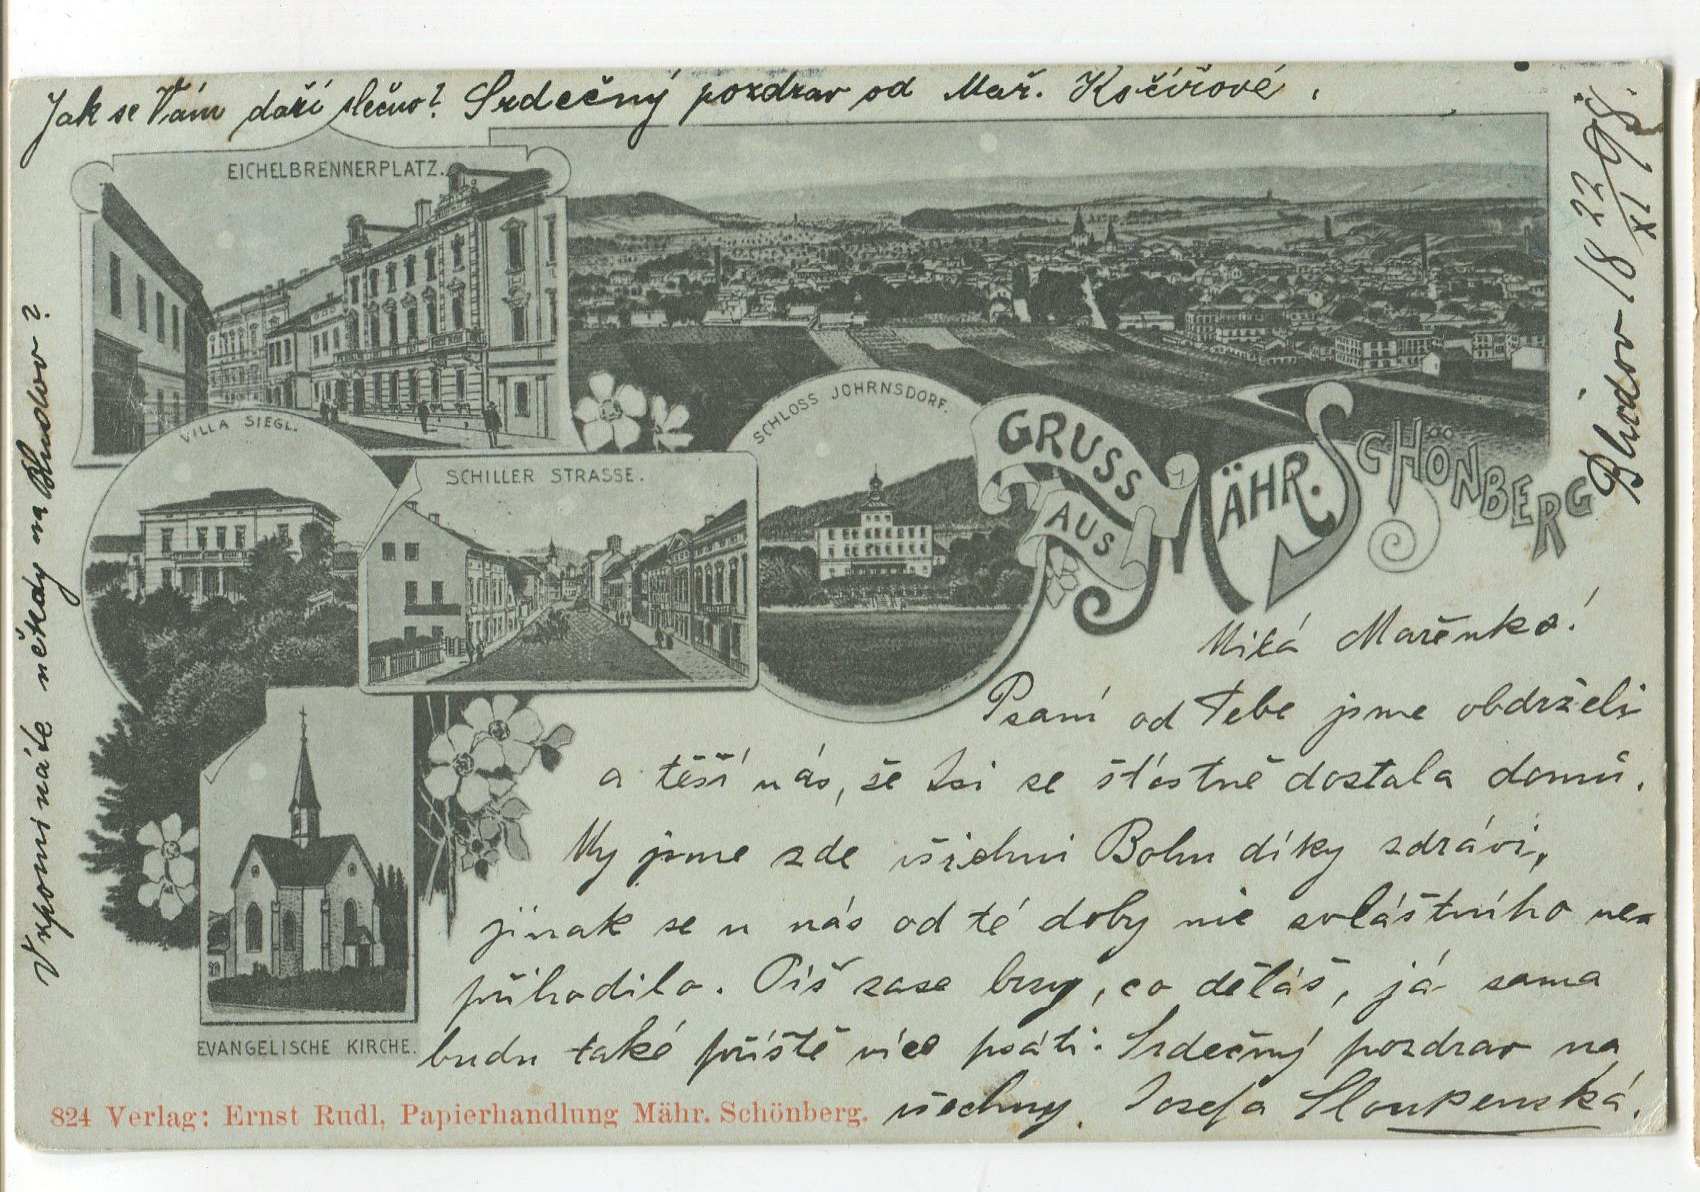 Jak se Vám daří slečno? Srdečný pozdrav od Mař. Kočířové.
EICHELBRENNERPLATZ.
VILLA SIEGL.
SCHILLER STRASSE.
SCHLOSS JOHRNSDORF.
GRUSS
AUS
MÄHR. SCHÖNBERG
Bludov 18 22/XI 98.
Milá Mařenko!
Psaní od Tebe jsme obdrželi
a těší nás, še Jsi se šťastně dostala domů.
My jsme zde všichni Bohu díky zdrávi,
jinak se u nás od té doby nic zvláštního ne-
přihodilo. Piš zase brzy, co děláš, já sama
budu také příště více psáti. Srdečný pozdrav na
všechny. Josefa Sloupenská.
Vzpomínáte někdy na Bludov?
EVANGELISCHE KIRCHE.
824 Verlag: Ernst Rudl, Papierhandlung Mähr. Schönberg.